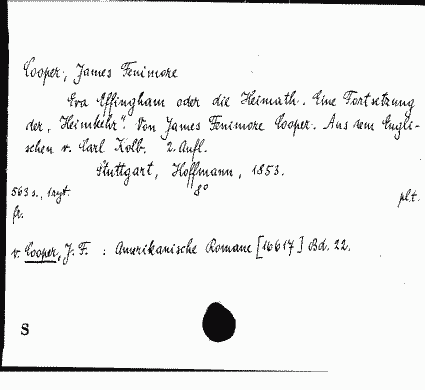 Cooper, James Fenimore
Eva Effingham oder die Heimath. Eine Fortsetzung
der „Heimkehr". Von James Fenimore Cooper. Aus dem Engli-
schen v. Carl Kolb. 2. Aufl.
Stuttgart, Hoffmann, 1853.
563 s., 1 ryt. 8° plt.
fr.
v. Cooper, J. F. : Amerikanische Romane [16617] Bd. 22.
S